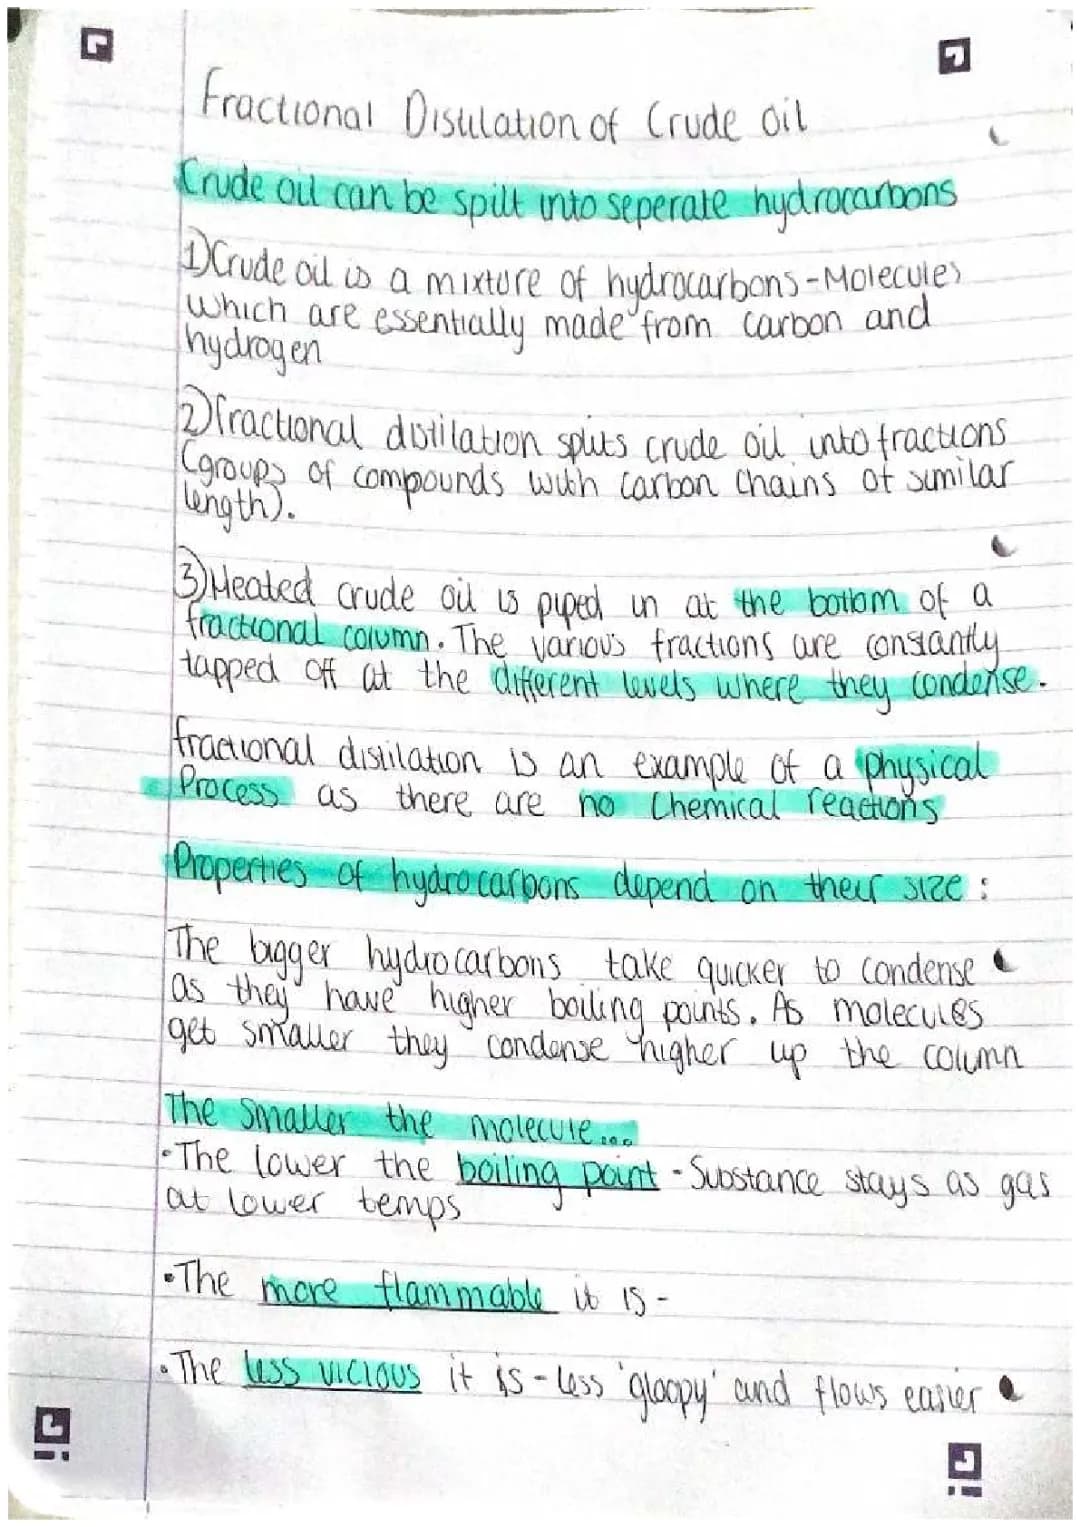 Fractional Distilation of Crude oil
Crude oil can be spilt into seperate hydrocarbons
1) Crude oil is a mixture of hydrocarbons - Molecules
which are essentially made from carbon and
hydrogen
2) fractional distilation splits crude oil into fractions
(groups of compounds with carbon chains of similar
length).
3) Heated crude oil is piped in at the bottom of a
fractional column. The various fractions are constantly
tapped off at the different levels where they condense.
fractional distilation is an example of a physical
Process as there are no chemical reactions
Properties of hydrocarbons depend on their size :
The bigger hydrocarbons take quicker to condense
as they have higher boiling points. As molecules
get smaller they condense higher up the column
The smaller the molecule...
•The lower the boiling point - Substance stays as gas
at lower temps
•The more flammable it is -
•The less vicious it is - less 'gloopy' and flows easier